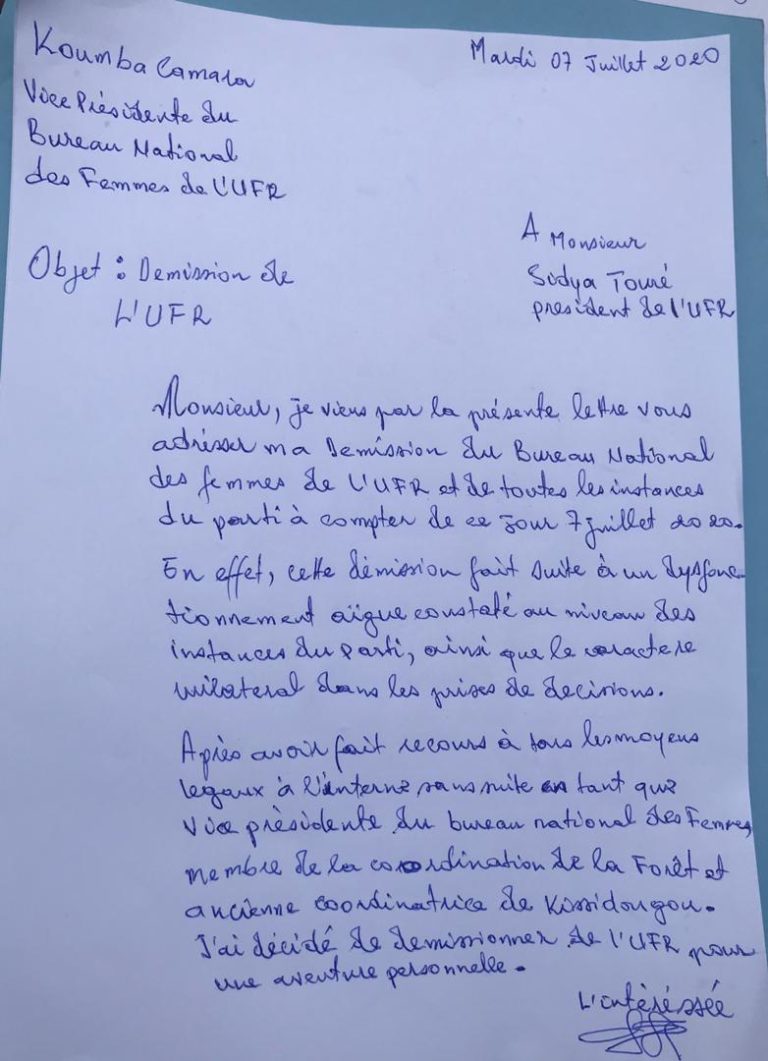 Koumba Camara
Mardi 07 Juillet 2020
Vice Présidente du
Bureau National
des Femmes de L'UFR
A Monsieur
Sidya Touré
president de l'UFR
Objet : Demission de
L'UFR
Monsieur, je viens par la présente lettre vous
adrésser ma Demission du Bureau National
des femmes de L'UFR et de toutes les instances
du parti à compter de ce jour 7 juillet 2020.
En effet, cette démission fait suite à un dysfonc-
tionnement aïgue constaté au niveau des
instances du parti, ainsi que le caractere
unilateral dans les prises de decisions.
Après avoir fait recours à tous les moyens
legaux à l'interne sans suite en tant que
Vice présidente du bureau national des Femmes,
membre de la coordination de la Forêt et
ancienne coordinatrice de Kissidougou.
J'ai décidé de demissionner de l'UFR pour
une aventure personnelle.
L'intéréssée